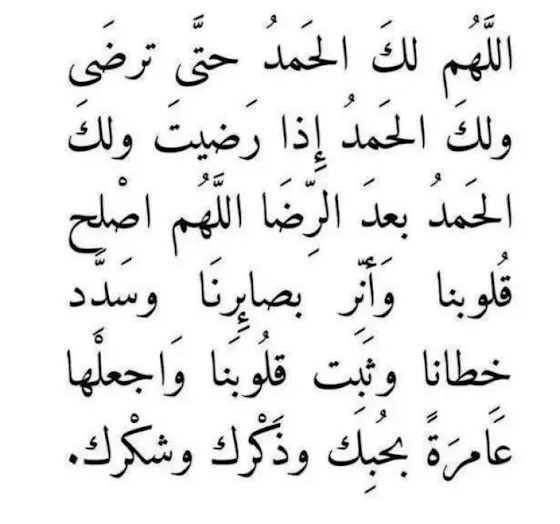 اللَّهُم لكَ الحَمدُ حتَّى ترضَى
ولكَ الحَمدُ إِذا رَضيتَ ولكَ
الحَمدُ بعدَ الرِّضَا اللَّهُم اصْلح
قُلوبنا وَأنّر بصايِٕرنَا وسَدَّد
خطانا وثَبِت قلُوبنَا وَاجعلْها
عَامرَةً بحُبِك وذَكْرك وشكْرك.